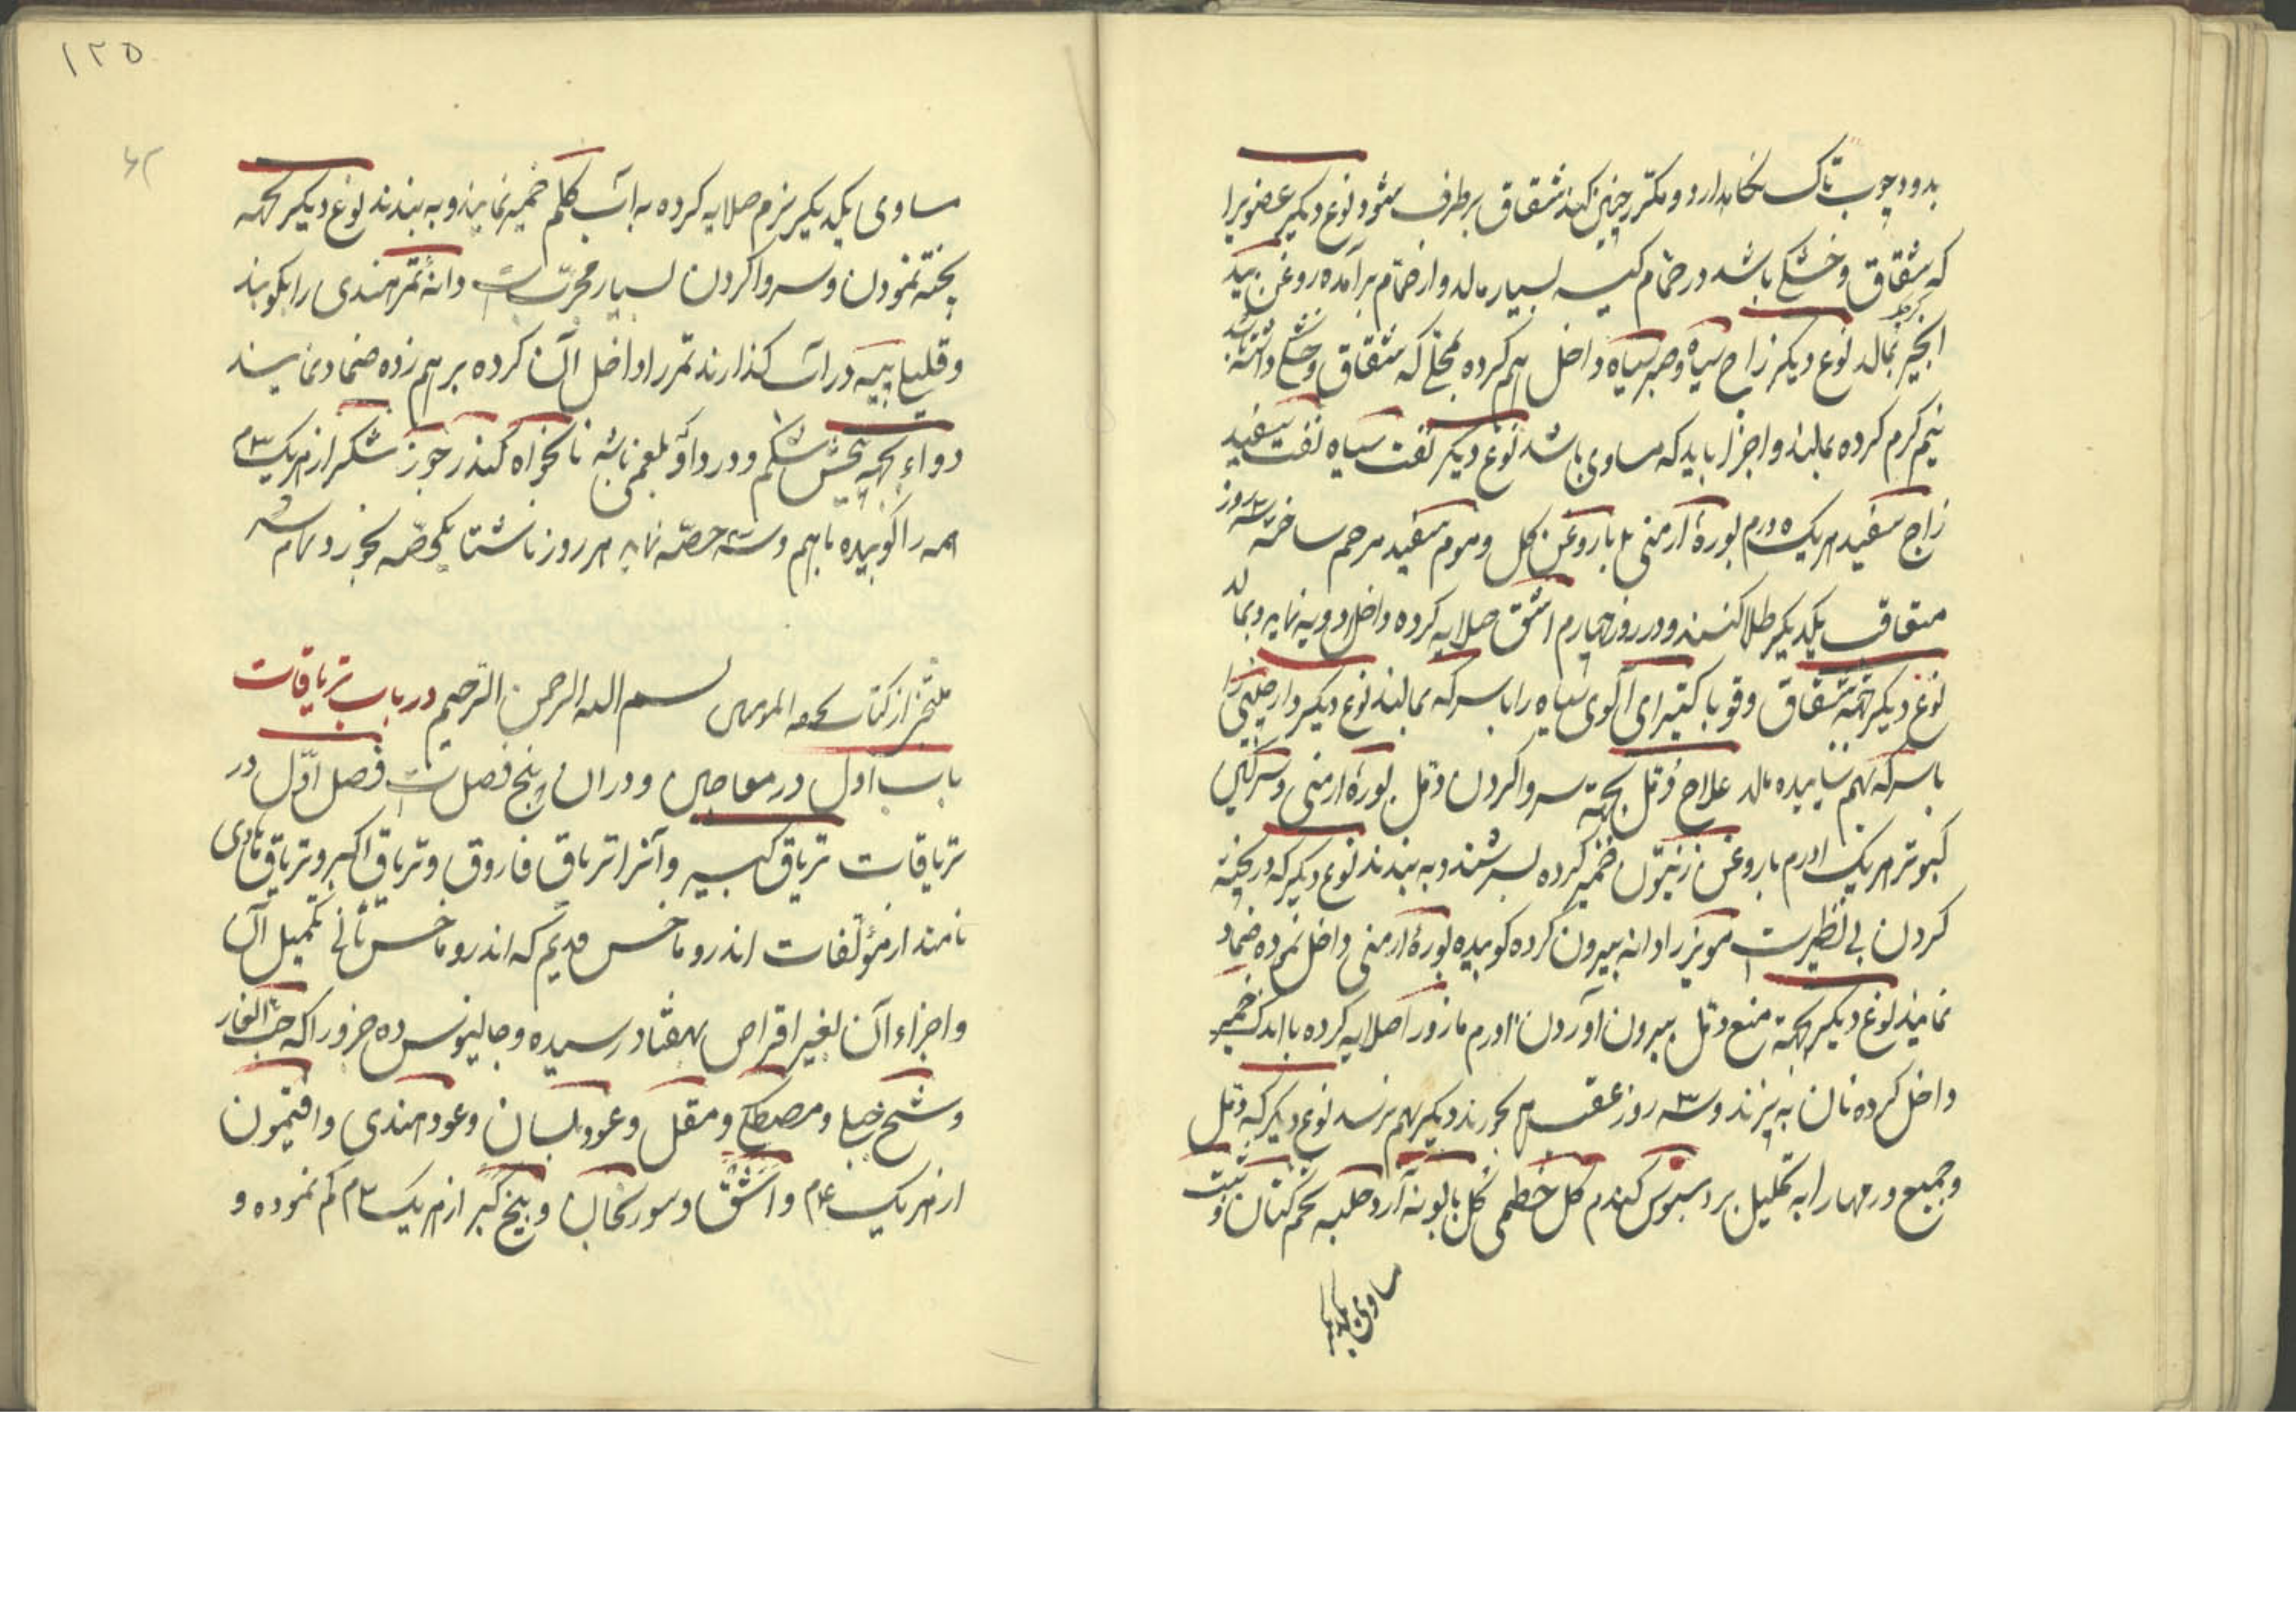 بدود چوب تاک نکاهدارد و مکرر چنین کند شقاق برطرف شود نوع دیکر عضویرا
که شقاق و خشکی باشد در حمام کیسه بسیار مالد و از حمام برآمده روغن بید
انجیر بمالد نوع دیکر زاج سیاه و صبر سیاه داخل هم کرده بمحلی که شقاق و خشکی داشته
نیم کرم کرده بمالند و اجزا باید که مساوی باشد نوع دیکر نفت سیاه نفت سفید
زاج سفید هریک ۵ درم بورهٔ ارمنی با روغن کل و موم سفید مرحم ساخته سه روز
متعاقب یکدیکر طلا کنند و در روز چهارم اشق صلایه کرده داخل دویه نماید و بمالد
نوع دیکر جهة شقاق و قوبا کتیرای آکوی سیاه را با سرکه بمالند نوع دیکر دارچینی را
با سرکه بهم ساییده مالد علاج دمل بجهة سر وا کردن دمل بورهٔ ارمنی و سرکین
کبوتر هریک ۱ درم با روغن زیتون خمیر کرده بسرشند و به بندند نوع دیکر که در پخته
کردن بی نظیرست مویز را دانه بیرون کرده کوبیده بورهٔ ارمنی داخل نموده ضماد
نمایند نوع دیکر بجهة منع دمل بیرون آوردن ۱ درم مازو را صلایه کرده با اندک خمیر
داخل کرده نان به پزند و سه روز عقب هم بخورند دیکر بهم نرسد نوع دیکر که دمل
و جمیع ورمها را به تحلیل برد سبوس کندم کل خطمی کل بابونه آرد حلبه تخم کتان
مساوی یکدیکر
۱۲۵
مساوی یکدیکر نرم صلایه کرده به آب کلم خمیر نمایند و به بندند نوع دیکر بجهة
پخته نمودن و سر وا کردن بسیار مجرّبست دانهٔ تمر هندی را بکوبند
و قلیلی پیه در آب کذارند تمر را داخل آن کرده برهم زده ضماد نمایند
دواء بجهة پیچش شکم و درد او بلغمی باشد نانخواه کندر جوز شکر از هریک ۳م
همه را کوبیده باهم و سه حصّه نماید هر روز ناشتا یکحصّه بخورد تمام شد
منتخب از کتاب تحفة المومنین بسم الله الرحمن الرّحیم در باب تریاقات
باب اول در معاجین و در آن پنج فصلست فصل اوّل در
تریاقات تریاق کبیر و آنرا تریاق فاروق و تریاق اکبر و تریاق هادی
نامند از مؤلفات اندروماخس قدیم که اندروماخس ثانی تکمیل آن
و اجزاء آن بغیر اقراص بهفتاد رسیده و جالینوس ده جزو را که حبّ الغار
و شیح جبلی و مصطکی و مقل و عود بلسان و عود هندی و افتیمون
از هریک ۴م و اشق و سورنجان و بیخ کبر از هریک ۳م کم نموده و